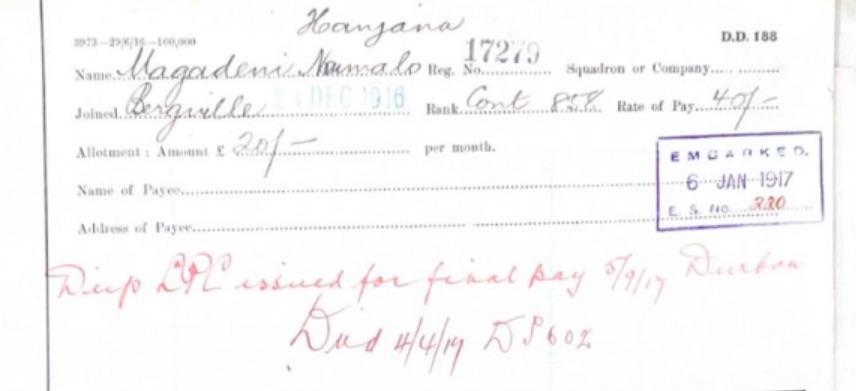 Hanjana
3973—29/6/16—100,000 D.D. 188
Name. Magadeni Numalo Reg. No. 17279 Squadron or Company
Joined. Bergville 21 DEC 1916 Rank Cont 858 Rate of Pay. 40/-
Allotment : Amount £ 20/- per month.
EMBARKED.
Name of Payee
6 JAN 1917
E. S. NO. 220
Address of Payee
Dup LPC issued for final pay 5/9/17 Durban
Died 4/4/17 DS 602